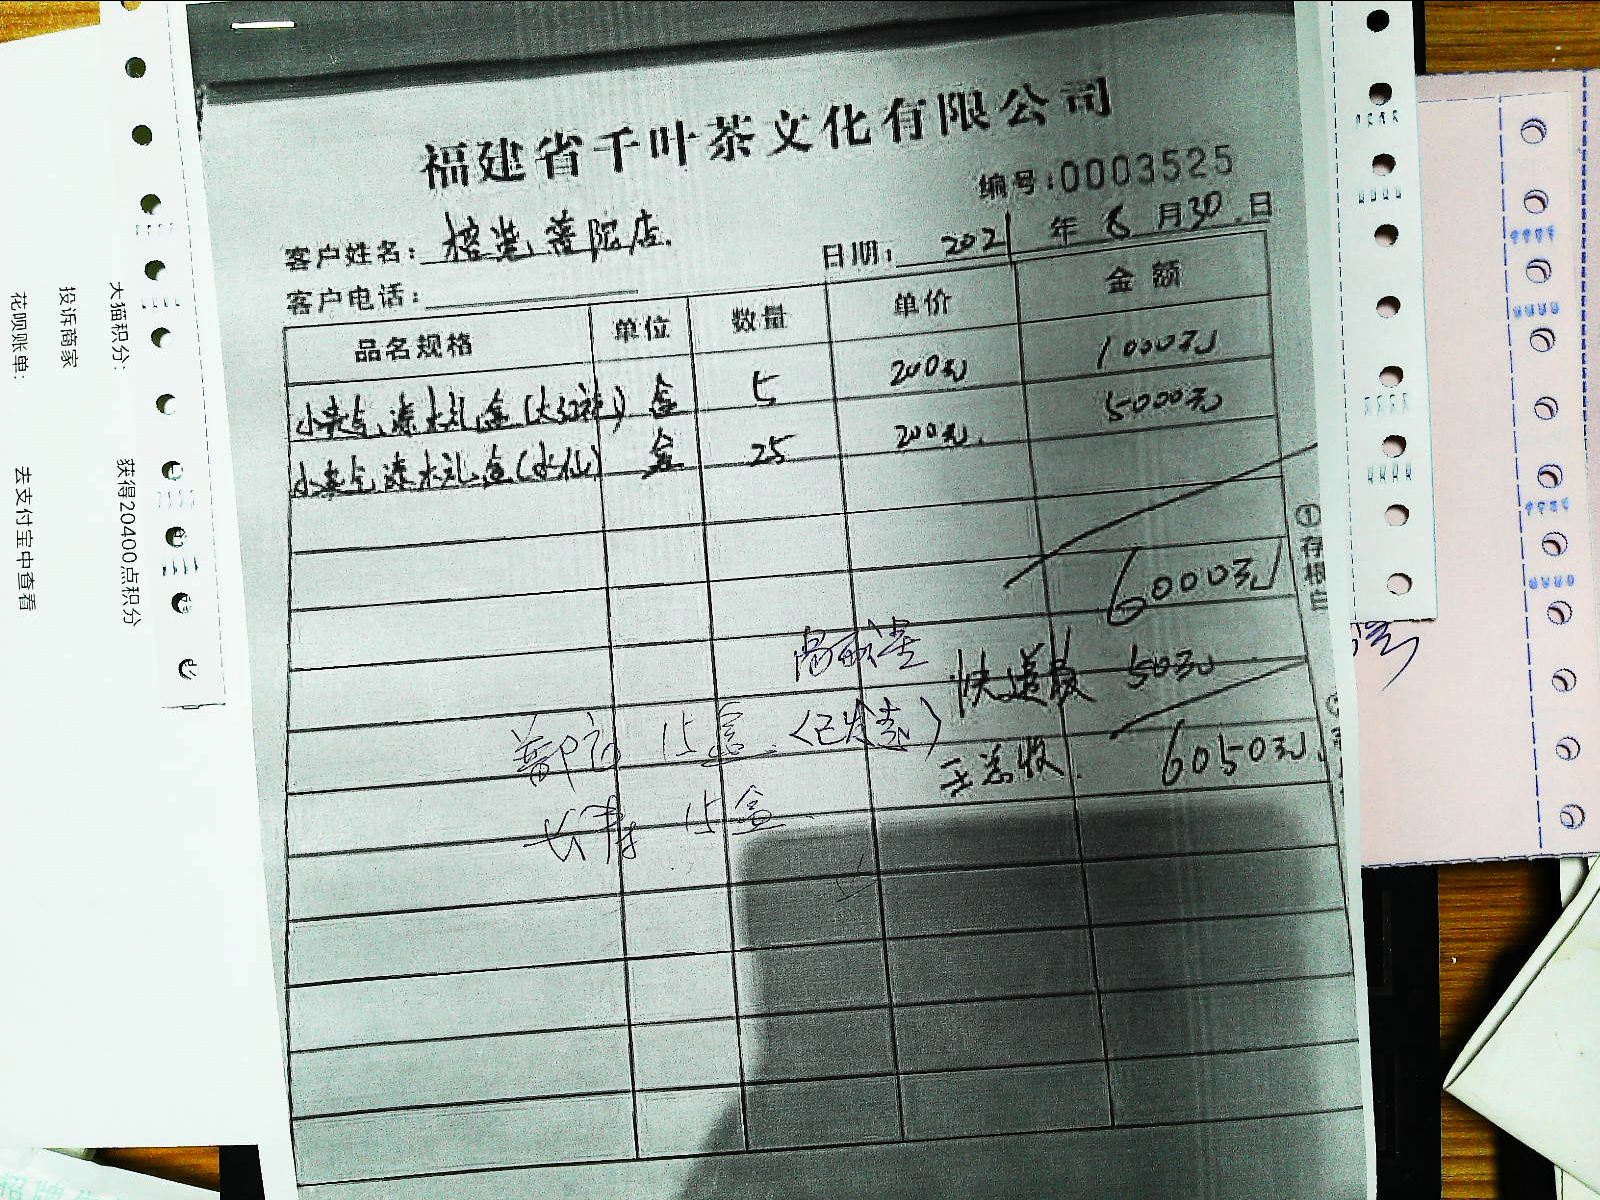 福建省千叶茶文化有限公司
编号:0003525
客户姓名: 普陀店.
日期: 2021 年 8 月 30 日
客户电话:
品名规格 单位 数量 单价 金额
礼盒(大红袍) 盒 5 200元 1000元
礼盒(水仙) 盒 25 200元. 5000元
6000元
快递费 50元
15盒.(已发)
6050元
15盒.
①存根白
天猫积分: 获得20400点积分
投诉商家
花呗账单: 去支付宝中查看